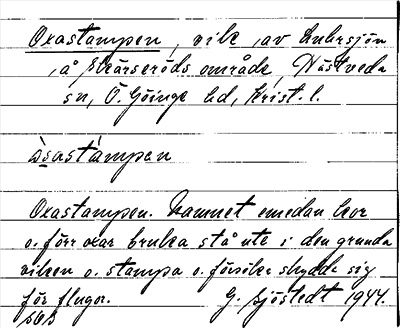 Oxastampen, vik, av Lubnsjön
, å Skärseröds område, Hästveda
sn, Ö. Göinge hd, Krist. l.
òsastámpen
Oxastampen. Namnet emedan kor
o. förr oxar bruka stå ute i den grunda
viken o. stampa o. försöka skydda sig
för flugor. G. Sjöstedt 1944.